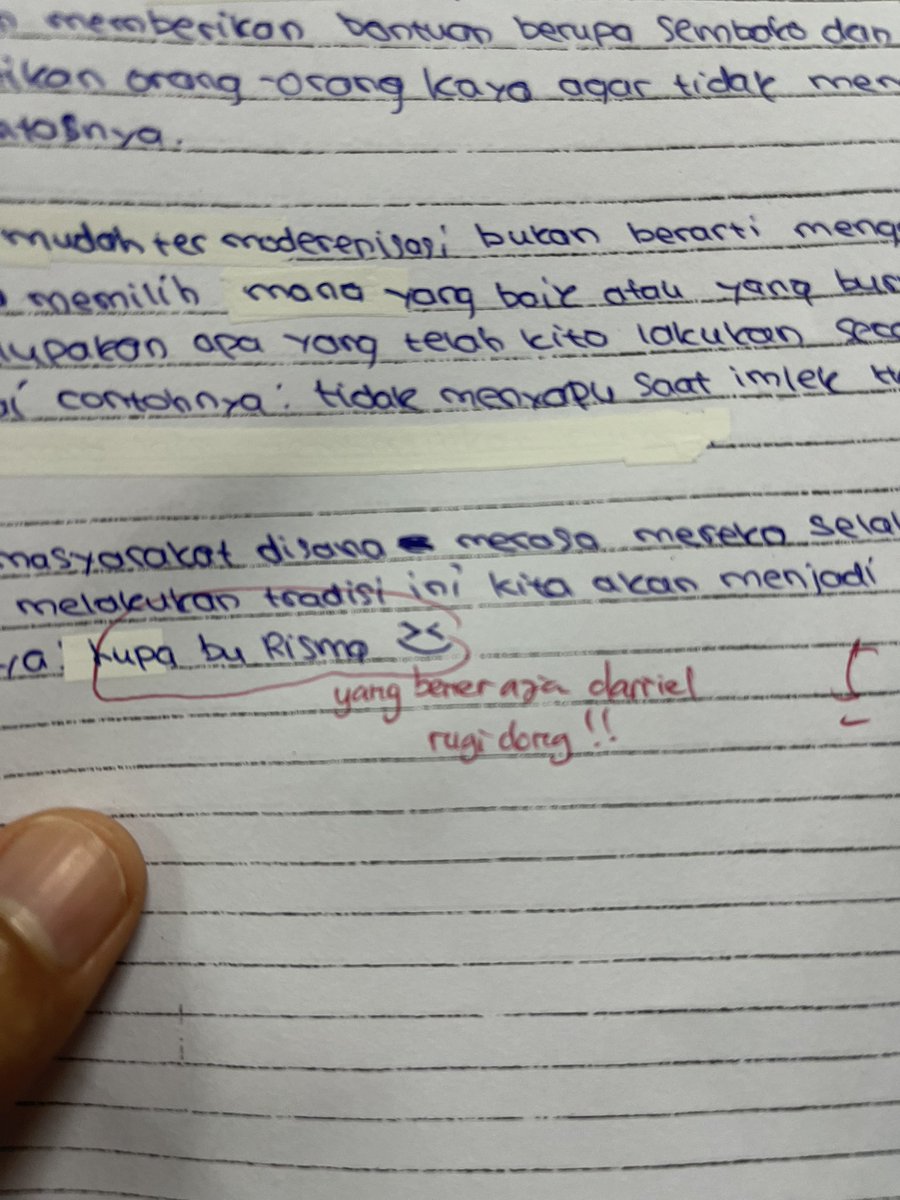 memberikan bantuan berupa sembako dan
ikan orang-orang kaya agar tidak men
atasnya.
mudah ter moderenisasi bukan berarti meng
memilih mana yang baik atau yang bur
lupakan apa yang telah kita lakukan seca
ai contohnya: tidak menyapu saat imlek
masyarakat disana merasa mereka selal
melakukan tradisi ini kita akan menjadi
ya: Lupa bu Risma ><
yang bener aja darriel
rugi dong !!